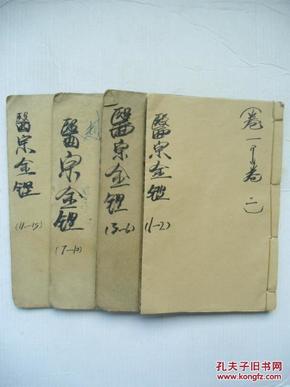 (卷一ー卷二)
醫宗金鑑
(1-2)
醫宗金鑑
(3-6)
醫宗金鑑
(7-10)
醫宗金鑑
(11-15)
孔夫子旧书网
www.kongfz.com